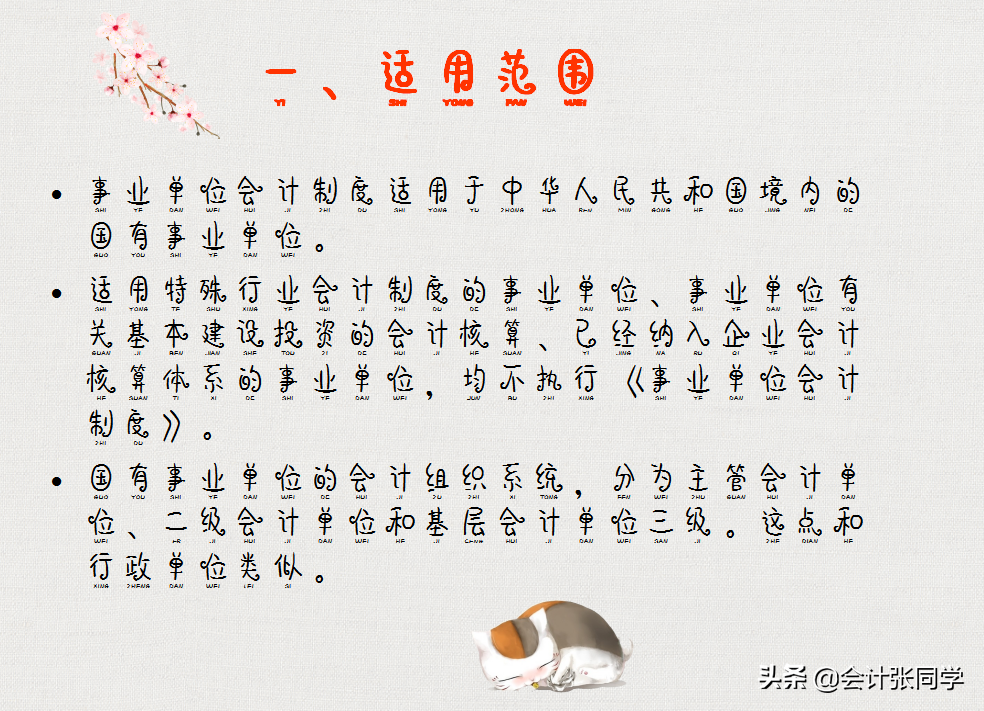 一、适用范围
• 事业单位会计制度适用于中华人民共和国境内的
国有事业单位。
• 适用特殊行业会计制度的事业单位、事业单位有
关基本建设投资的会计核算、已经纳入企业会计
核算体系的事业单位，均不执行《事业单位会计
制度》。
• 国有事业单位的会计组织系统，分为主管会计单
位、二级会计单位和基层会计单位三级。这点和
行政单位类似。
头条 @会计张同学